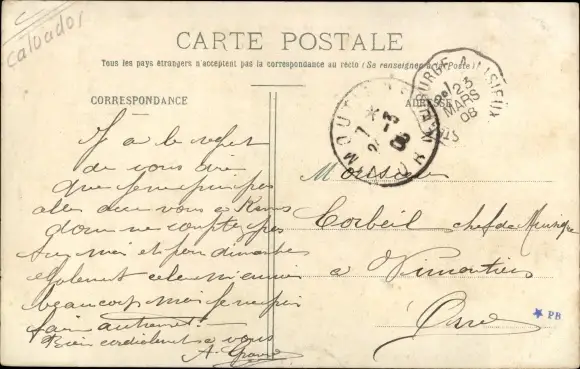 calvados
CARTE POSTALE
Tous les pays étrangers n'acceptent pas la correspondance au recto (Se renseigner à la Poste)
CORRESPONDANCE
ADRESSE
J'ai le regret
de vous dire
que je ne puis pas
aller avec vous à
donc ne comptez pas
sur moi et pour dimanche
également cela m'ennuie
beaucoup mais je ne puis
faire autrement
Bien cordialement à vous
A.
Monsieur
Corbeil chef de Musique
à Vimoutiers
Orne
MARS
08
PB